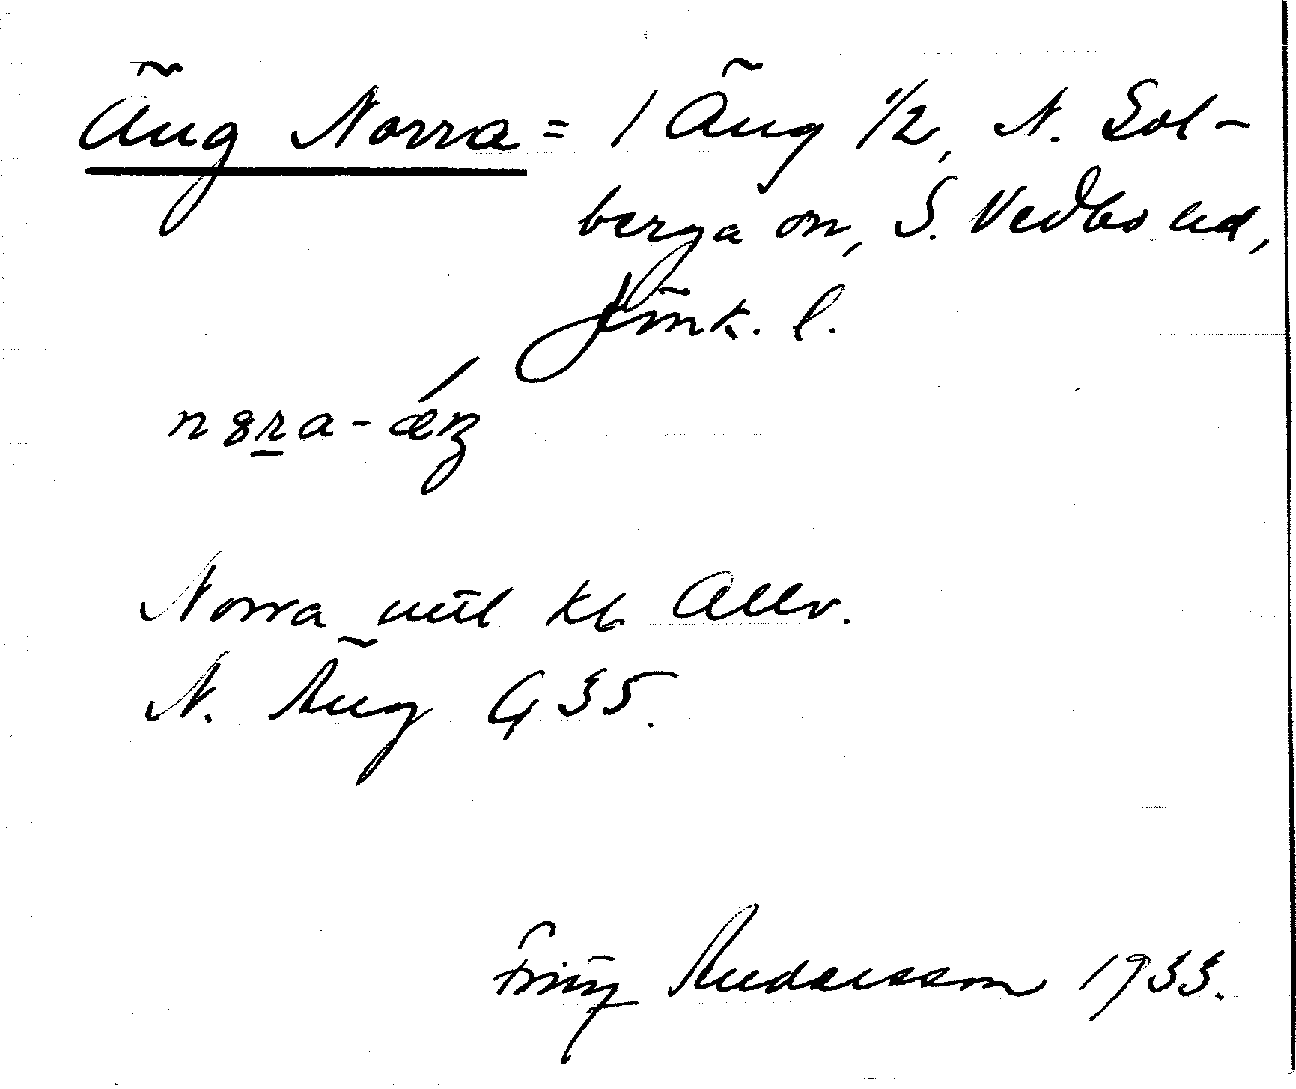 Äng Norra = 1 Äng 1/2, N. Sol-
berga sn, S. Vedbo hd,
Jönk. l.
Norra mtl kb Allv.
N. Äng G 35.
Fritz Andersson 1933.